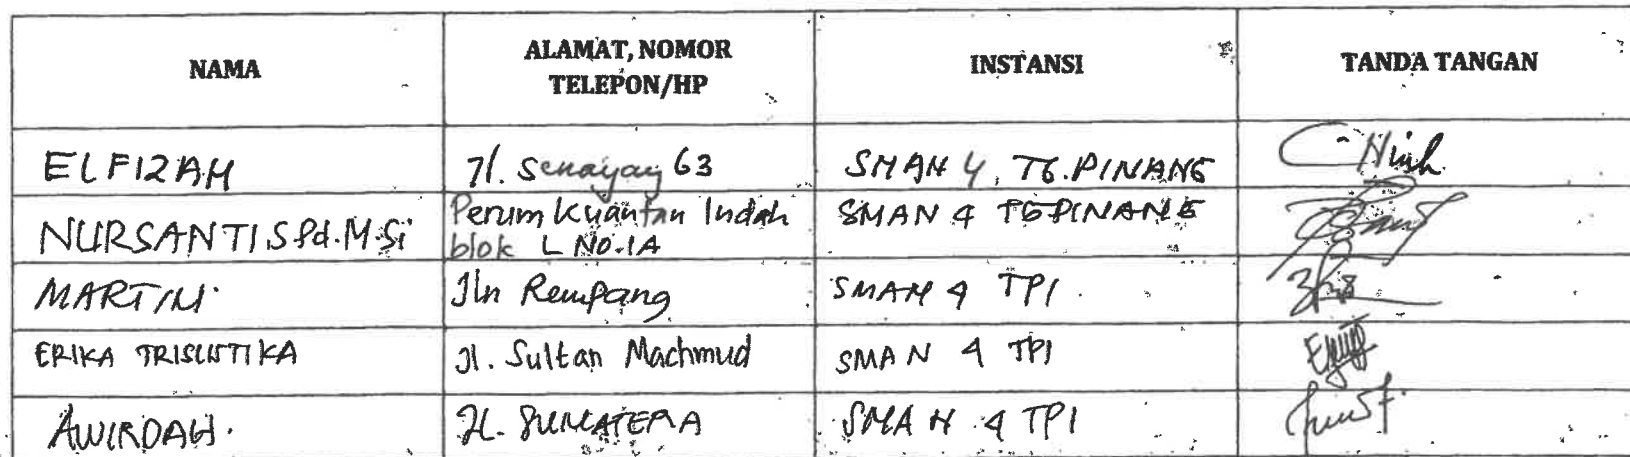 NAMA
ALAMAT, NOMOR
TELEPON/HP
INSTANSI
TANDA TANGAN
ELFIZAH
Jl. Senayang 63
SMAN 4, TG. PINANG
NURSANTI, S.Pd. M.Si
Perum Kuantan Indah
blok L No. 1A
SMAN 4 TG PINANG
MARTINI
Jln Rempang
SMAN 4 TPI
ERIKA TRISUSTIKA
Jl. Sultan Machmud
SMAN 4 TPI
AWIRDAH.
JL. SUMATERA
SMAN 4 TPI